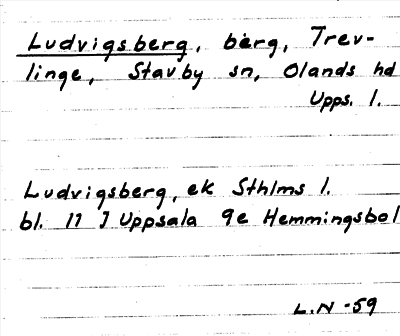 Ludvigsberg, berg, Trev-
linge, Stavby sn, Olands hd
Upps. l.
Ludvigsberg, ek Sthlms l.
bl. 11 I Uppsala 9e Hemmingsbol
L.N -59